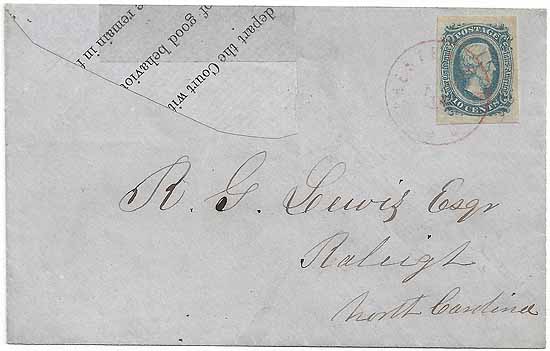 g remain in f
of good behavior
depart the Court wit
POSTAGE
10 CENTS
R. G. Lewis Esqr
Raleigh
North Carolina